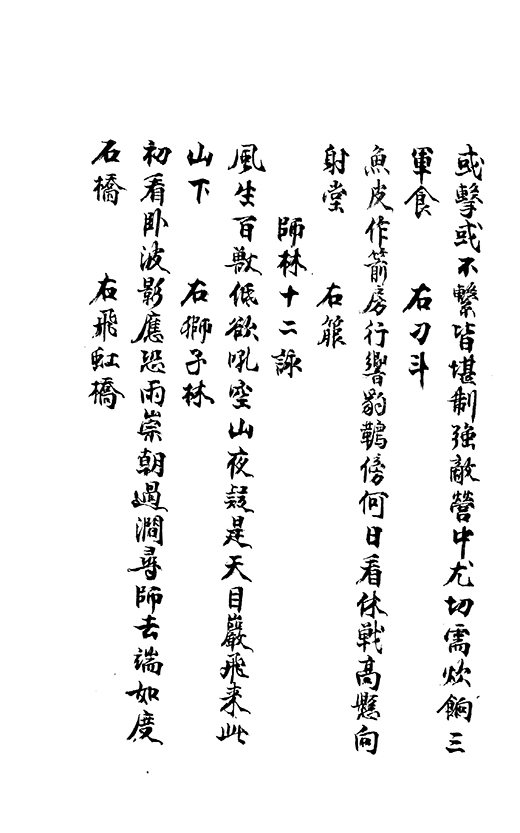 或擊或不繫皆堪制強敵營中尤切需炊餉三
軍食　右刀斗
魚皮作箭房行響豹鞬傍何日看休戰高懸向
射堂　右箙
師林十二詠
風生百獸低欲吼空山夜疑是天目巖飛來此
山下　右獅子林
初看臥波影應恐雨崇朝過澗尋師去端如度
石橋　右飛虹橋